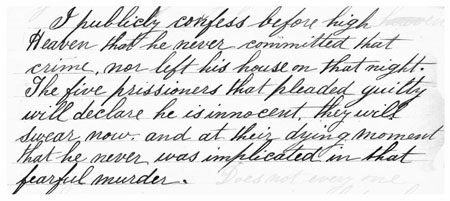 I publicly confess before high
Heaven that he never committed that
crime, nor left his house on that night.
The five prissioners that pleaded guilty
will declare he is innocent, they will
swear now. and at their dying moment
that he never was implicated in that
fearful murder. Does not every me